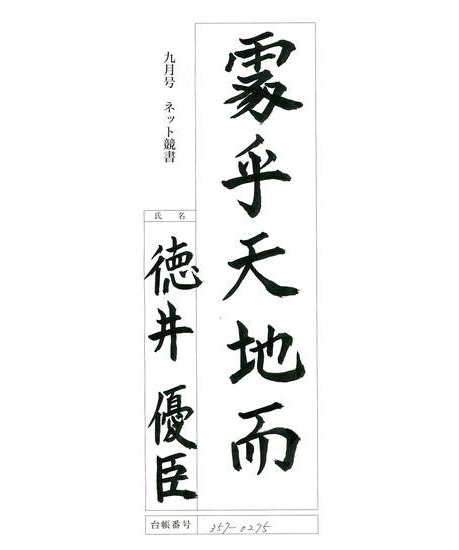 處乎天地而
九月号 ネット競書
氏名
徳井 優臣
台帳番号 357-0275